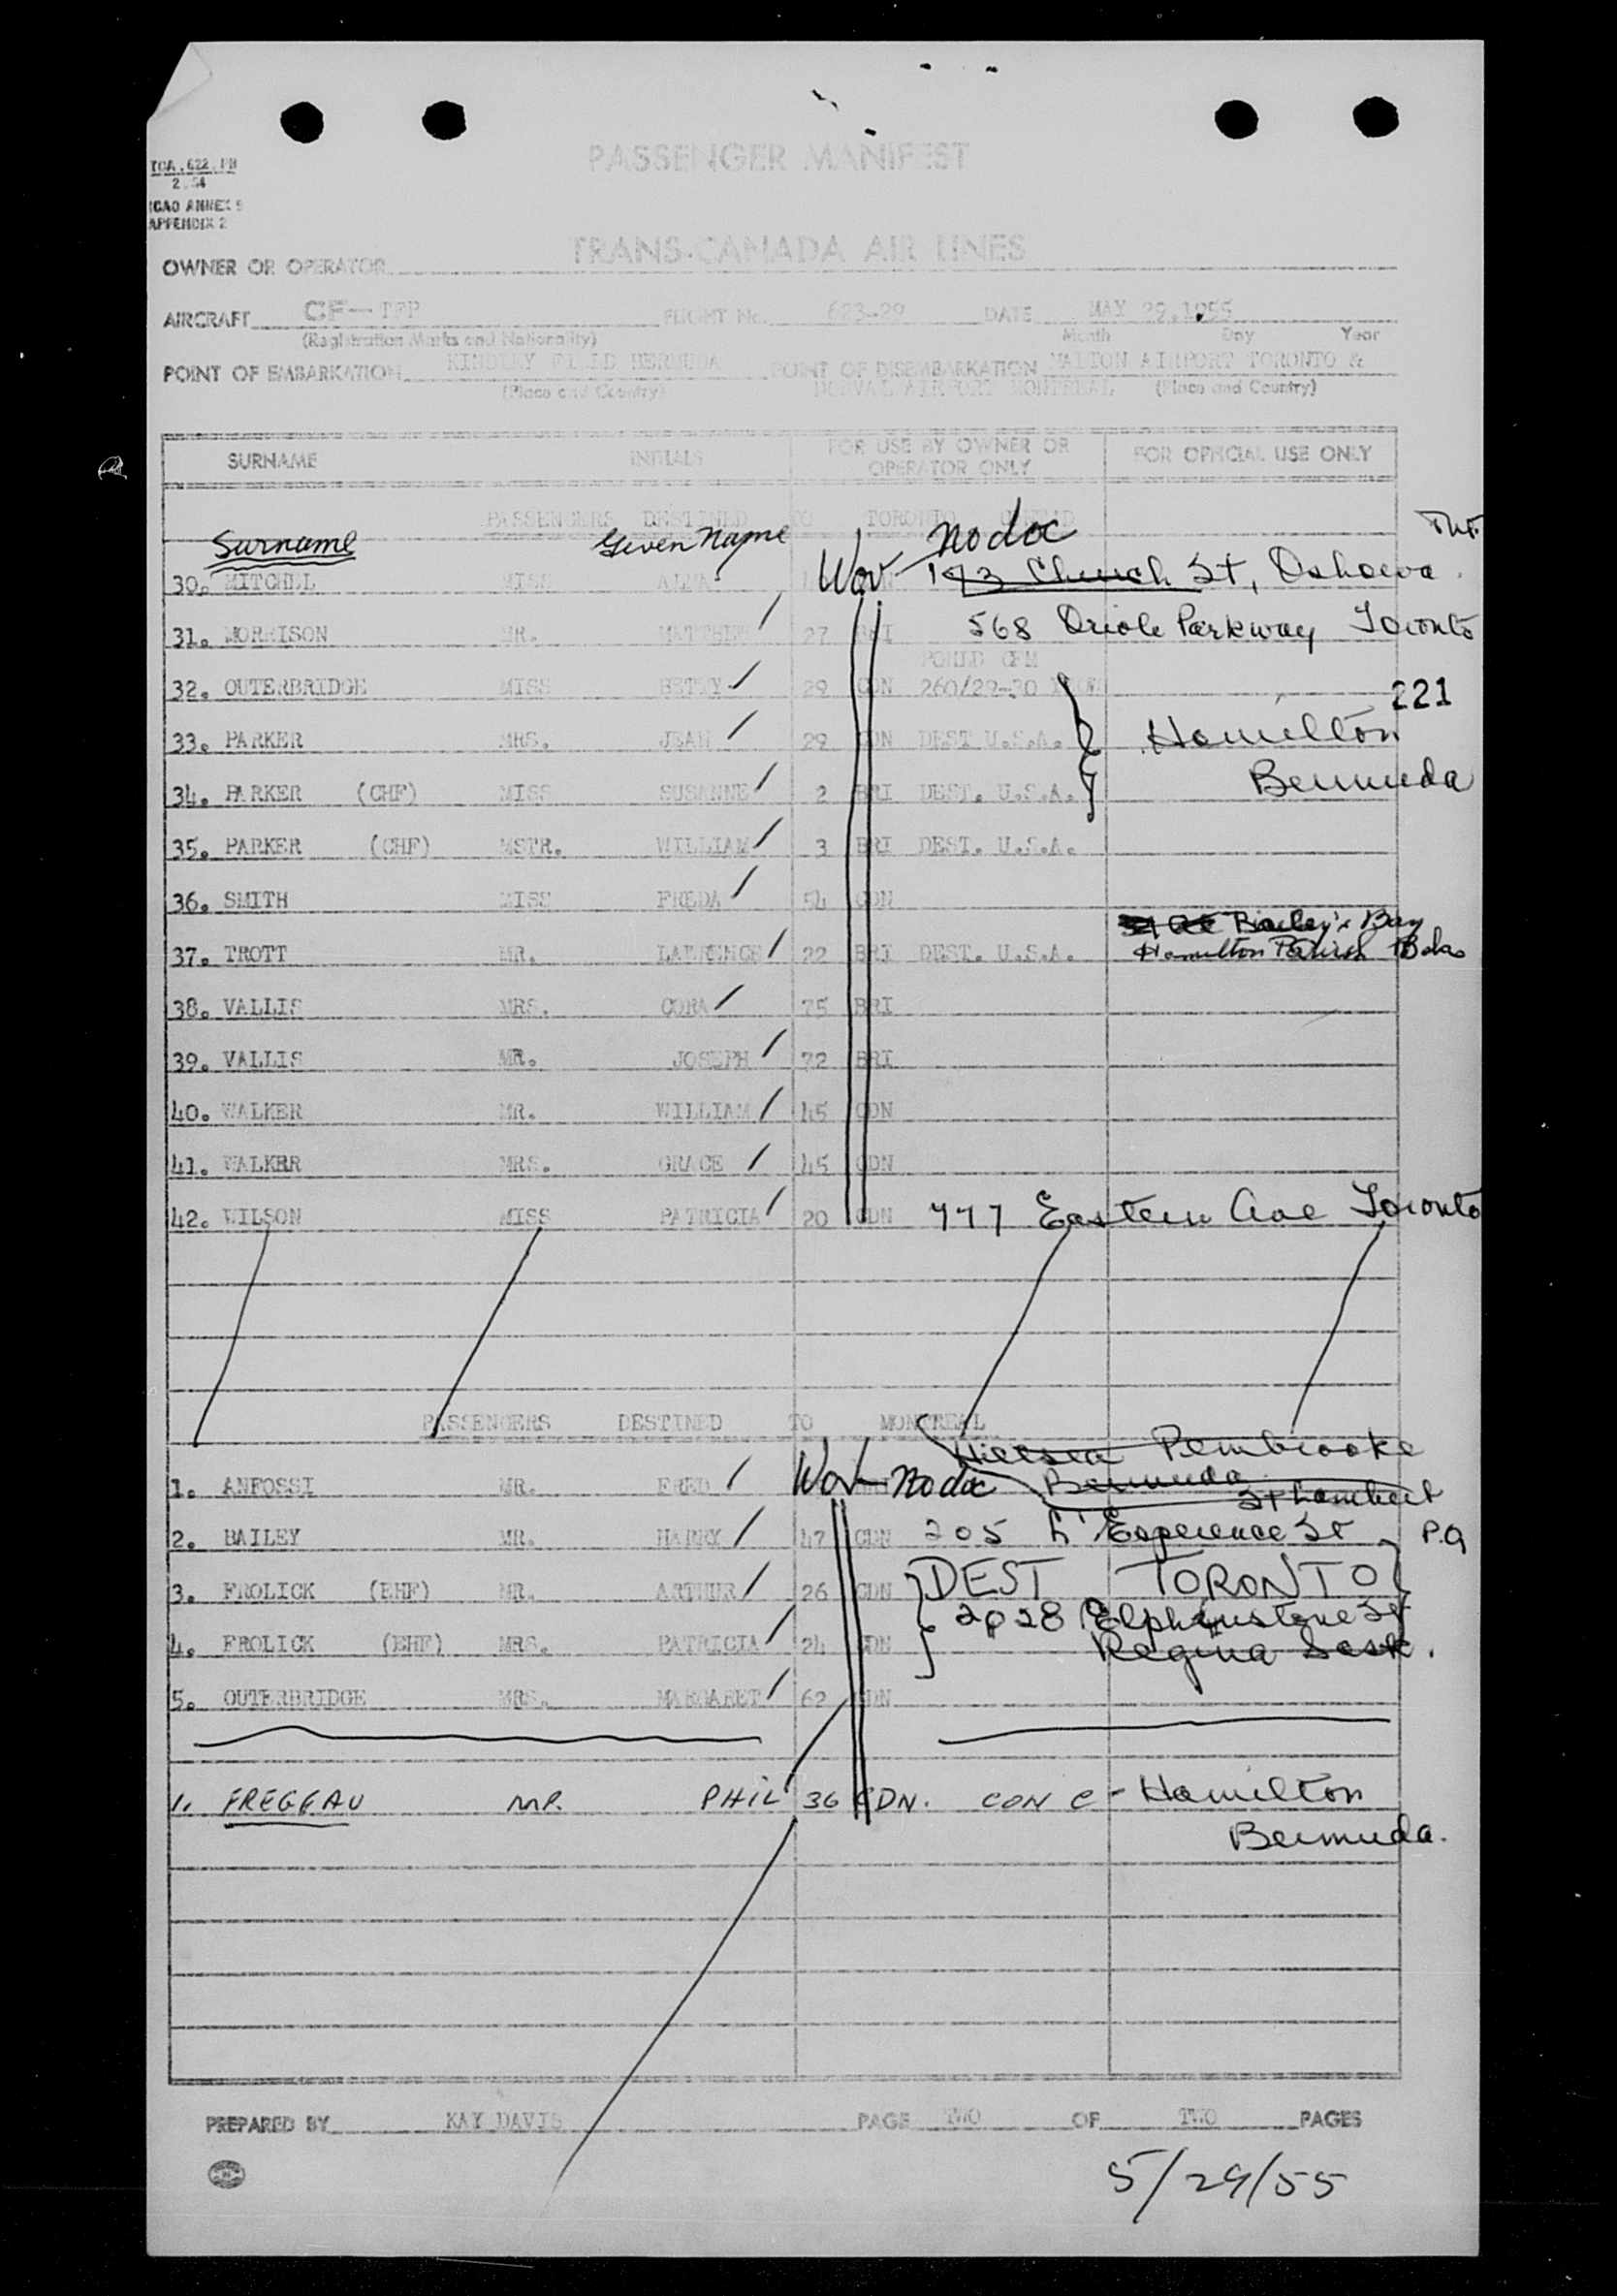 PASSENGER MANIFEST
TCA.622.PH
2.54
ICAO ANNEX 9
APPENDIX 2
TRANS-CANADA AIR LINES
OWNER OR OPERATOR
AIRCRAFT CF-TFP FLIGHT No. 623-29 DATE MAY 29.1955
(Registration Marks and Nationality) Month Day Year
POINT OF EMBARKATION KINDLEY FIELD BERMUDA POINT OF DISEMBARKATION MALTON AIRPORT TORONTO &
(Place and Country) DORVAL AIRPORT MONTREAL (Place and Country)
SURNAME INITIALS FOR USE BY OWNER OR OPERATOR ONLY FOR OFFICIAL USE ONLY
PASSENGERS DESTINED TO TORONTO
Surname Given Name no doc
30. MITCHEL MISS 193 Church St, Oshawa
31. MORRISON MR. MATTHEW 27 BRI 568 Oriole Parkway Toronto
32. OUTERBRIDGE MISS BETTY 29 CDN 260/29-30
221
33. PARKER MRS. JEAN 29 CDN DEST U.S.A. Hamilton
34. PARKER (CHF) MISS SUSANNE 2 BRI DEST. U.S.A. Bermuda
35. PARKER (CHF) MSTR. WILLIAM 3 BRI DEST. U.S.A.
36. SMITH MISS FREDA 54 CDN
Bailey's Bay
37. TROTT MR. LAWRENCE 22 BRI DEST. U.S.A. Hamilton Parish
38. VALLIS MRS. CORA 75 BRI
39. VALLIS MR. JOSEPH 72 BRI
40. WALKER MR. WILLIAM 45 CDN
41. WALKER MRS. GRACE 45 CDN
42. WILSON MISS PATRICIA 20 CDN 777 Eastern Ave Toronto
PASSENGERS DESTINED TO MONTREAL
Pembrooke
Bermuda
1. ANFOSSI MR. FRED no doc St Lambert
2. BAILEY MR. HARRY 47 CDN 205 L'Esperence St P.Q
3. FROLICK (BHF) MR. ARTHUR 26 CDN DEST TORONTO
2028 Elphinstone St
4. FROLICK (BHF) MRS. PATRICIA 24 CDN Regina Sask.
5. OUTERBRIDGE MRS. MARGARET 62 CDN
1. FREGEAU MR. PHIL 36 CDN. CON C - Hamilton
Bermuda.
PREPARED BY KAY DAVIS PAGE TWO OF TWO PAGES
5/29/55